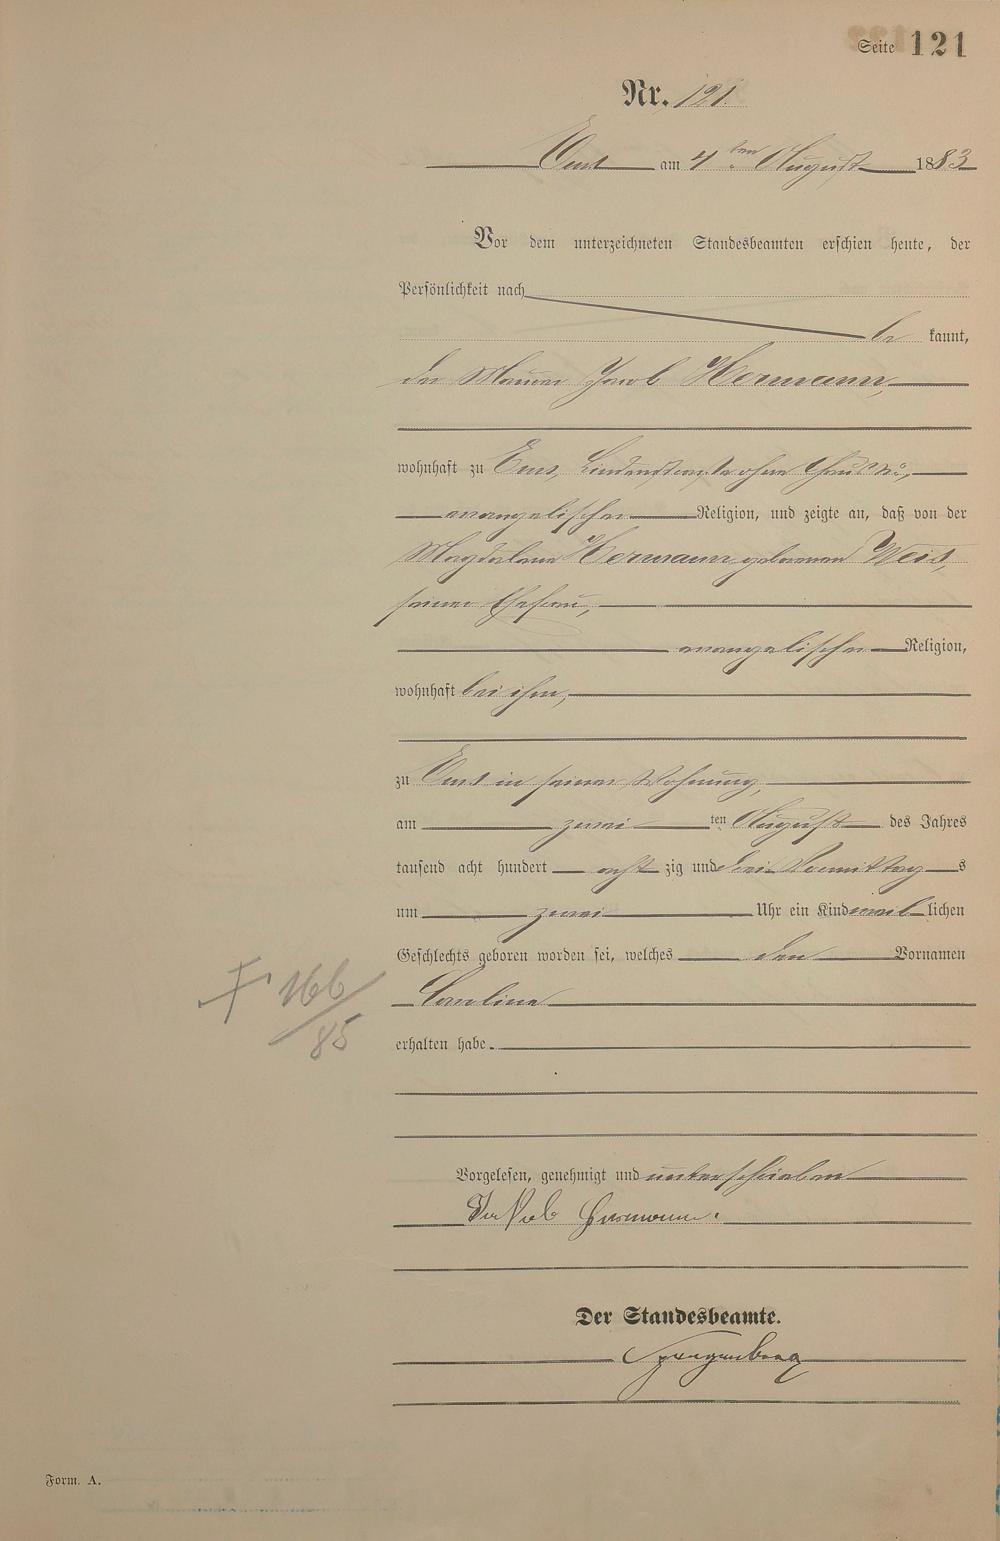 Seite 121
Nr. 121.
Ems am 4ten August 1883
Vor dem unterzeichneten Standesbeamten erschien heute, der
Persönlichkeit nach
be kannt,
der Maurer Jacob Hermann,
wohnhaft zu Ems, Lindenstraße ohne Haus No.,
evangelischer Religion, und zeigte an, daß von der
Magdalena Hermann geborenen Weis,
seiner Ehefrau,
evangelischer Religion,
wohnhaft bei ihm,
zu Ems in seiner Wohnung,
am zwei ten August des Jahres
tausend acht hundert acht zig und drei Vormittag s
um zwei Uhr ein Kind weib lichen
Geschlechts geboren worden sei, welches den Vornamen
Caroline
erhalten habe.
† 166/85
Vorgelesen, genehmigt und unterschrieben
Jakob Hermann.
Der Standesbeamte.
Form. A.